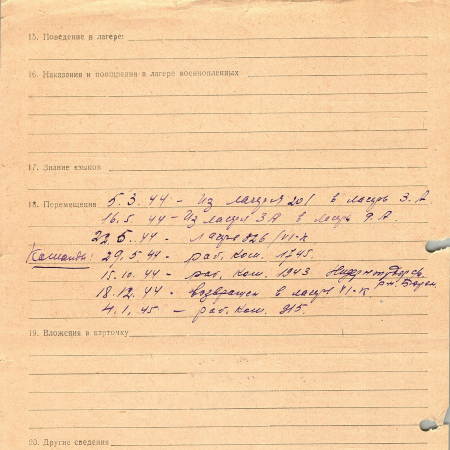 15. Поведение в лагере:
16. Наказания и поощрения в лагере военнопленных
17. Знание языков
18. Перемещения 5.3.44 - Из лагеря 201 в лагерь 3.А
16.5.44 - Из лагеря 3А в лагерь 9.А.
22.5.44 - лагерь 326/VI-К
Команды: 29.5.44 - раб. ком. 1245.
15.10.44 - раб. ком. 1943
18.12.44 - возвращен в лагерь VI-К
4.1.45 - раб. ком. 315.
19. Вложения в карточку
20. Другие сведения